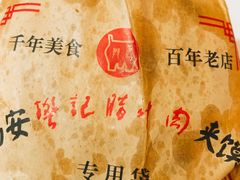 千年美食
百年老店
安
樊記腊汁肉
夹馍
专用袋